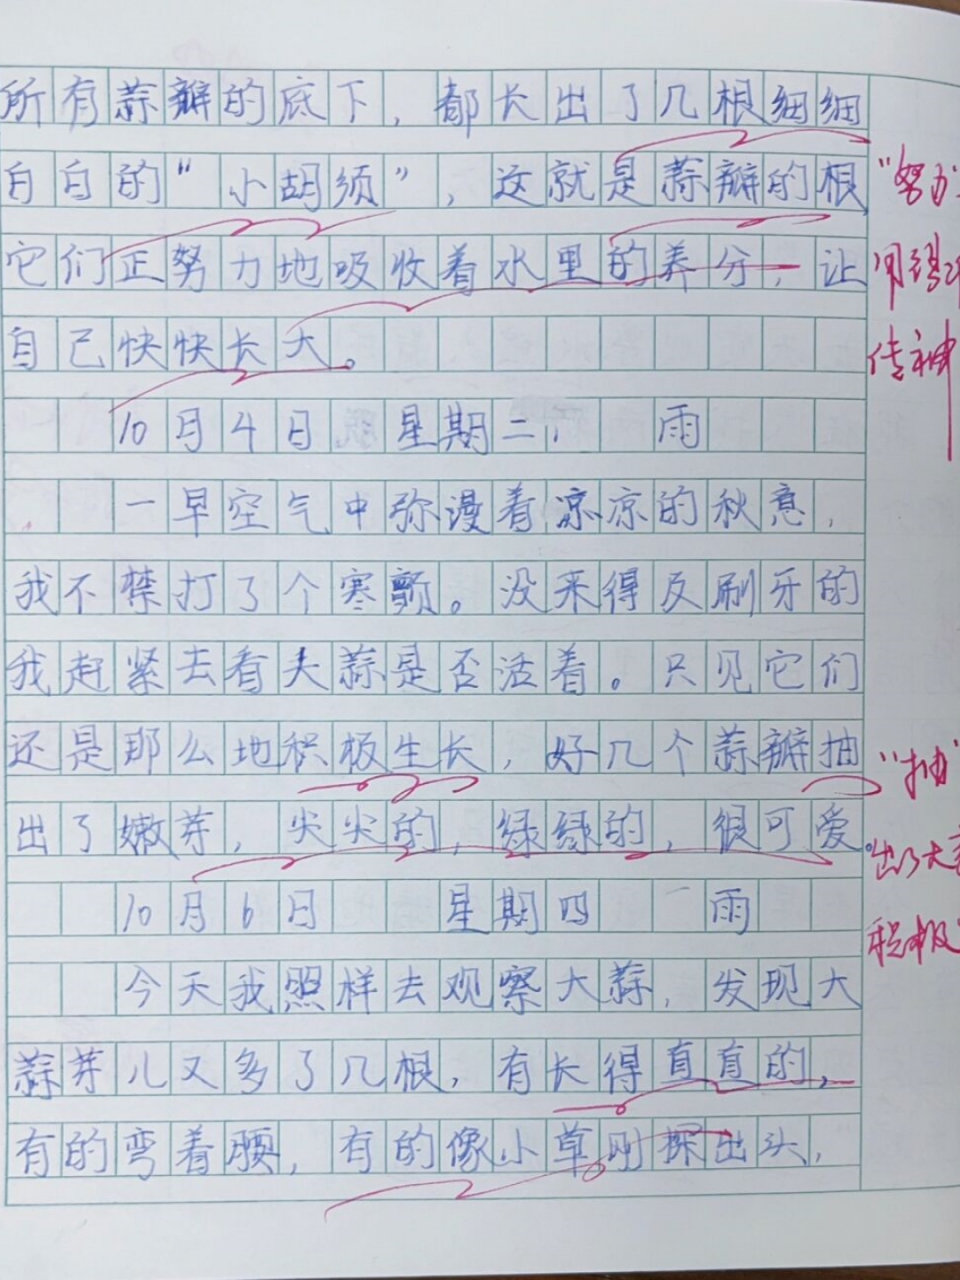 所有蒜瓣的底下，都长出了几根细细
白白的“小胡须”，这就是蒜瓣的根
它们正努力地吸收着水里的养分，让
自己快快长大。
10月4日 星期二， 雨
一早空气中弥漫着凉凉的秋意，
我不禁打了个寒颤。没来得及刷牙的
我赶紧去看大蒜是否活着。只见它们
还是那么地积极生长，好几个蒜瓣抽
出了嫩芽，尖尖的，绿绿的，很可爱。
10月6日 星期四 雨
今天我照样去观察大蒜，发现大
蒜芽儿又多了几根，有长得直直的，
有的弯着腰，有的像小草刚探出头，
“努力
用得
传神
“抽”
出了大
积极